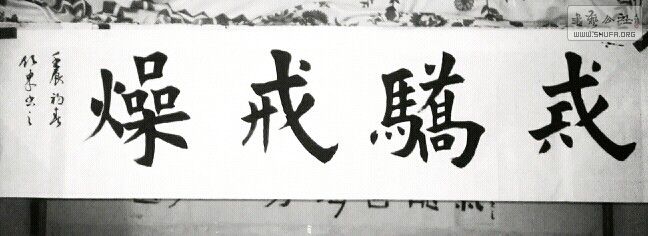 戒驕戒燥
壬辰初春
書之
公社
WWW.SHUFA.ORG